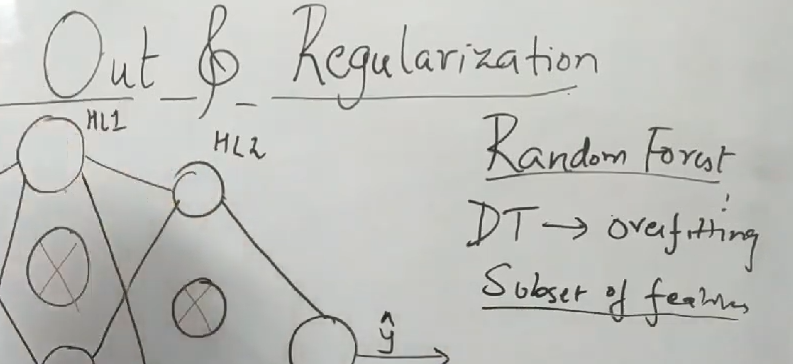 Out & Regularization
HL1
HL2
Random Forest
DT → overfitting
Subset of features
ŷ